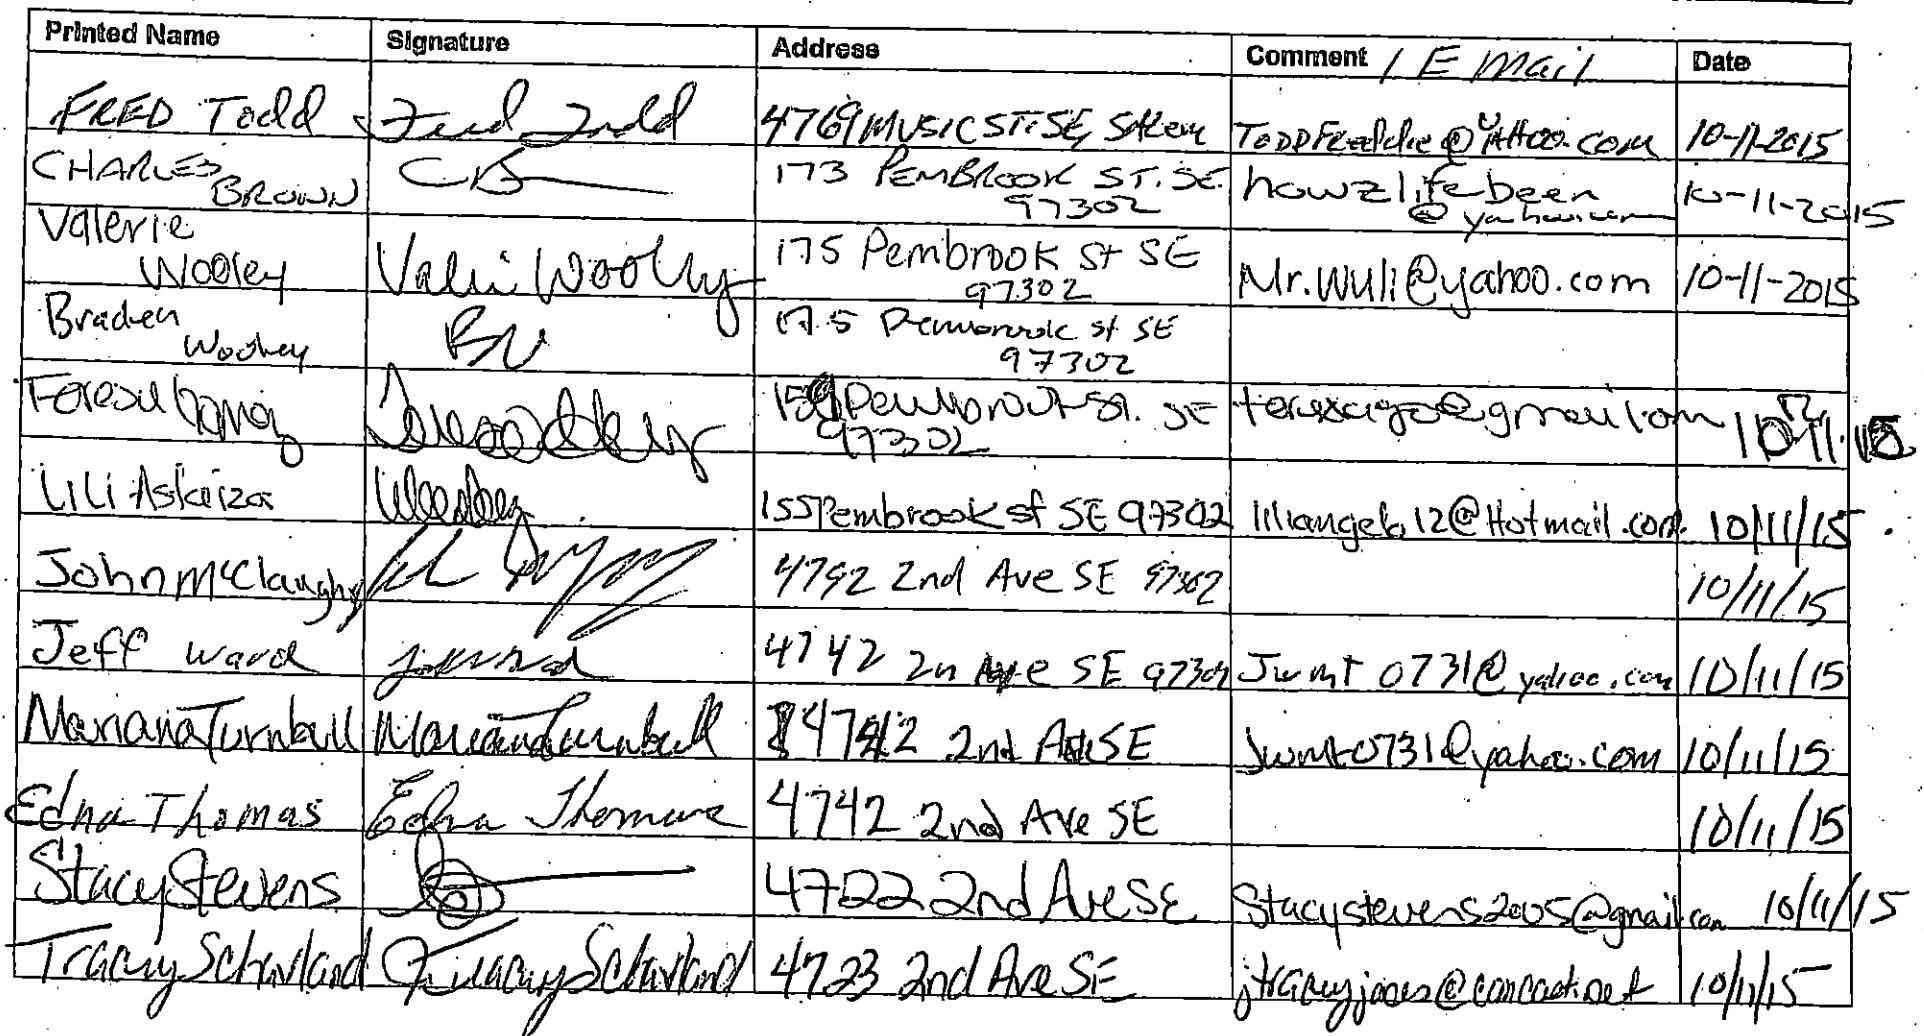 Printed Name Signature Address Comment / E Mail Date
FRED Todd Fred Todd 4769 MUSIC ST. SE, Salem ToddFreddie@YAHOO.COM 10-11-2015
CHARLES BROWN CB 173 PEMBROOK ST. SE 97302 howzlifebeen @yahoo.com 10-11-2015
Valerie Wooley Valerie Woolley 175 Pembrook St SE 97302 Mr.Wuli@yahoo.com 10-11-2015
Braden Woolley BW 175 Pembrook st SE 97302
Pembrook St. SE 97302 10-11-15
LiLi 155 Pembrook st SE 97302 liliangela12@Hotmail.com 10/11/15
John McClaughry 4792 2nd Ave SE 97302 10/11/15
Jeff Ward jward 4742 2n Ave SE 97302 Jwmt0731@yahoo.com 10/11/15
Mariana Turnbull Mariana Turnbull 4742 2nd Ave SE Jwmt0731@yahoo.com 10/11/15
Edna Thomas Edna Thomas 4742 2nd Ave SE 10/11/15
Stacy Stevens 4722 2nd Ave SE Stacystevens2005@gmail.com 10/11/15
Tracy Scharland Tracy Scharland 4723 2nd Ave SE jtracyjones@comcast.net 10/11/15